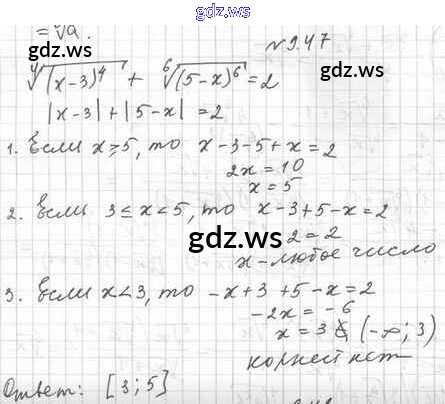 gdz.ws
= ⁿ√a.
gdz.ws
№9.47
⁴√(x-3)⁴ + ⁶√(5-x)⁶ = 2
|x-3|+|5-x| = 2
1. Если x⩾5, то x-3-5+x=2
2x=10
x=5
2. Если 3≤x<5, то x-3+5-x=2
gdz.ws
2=2
x-любое число
3. Если x<3, то -x+3+5-x=2
-2x=-6
x=3 ∉ (-∞; 3)
корней нет
Ответ: [3;5]
gdz.ws